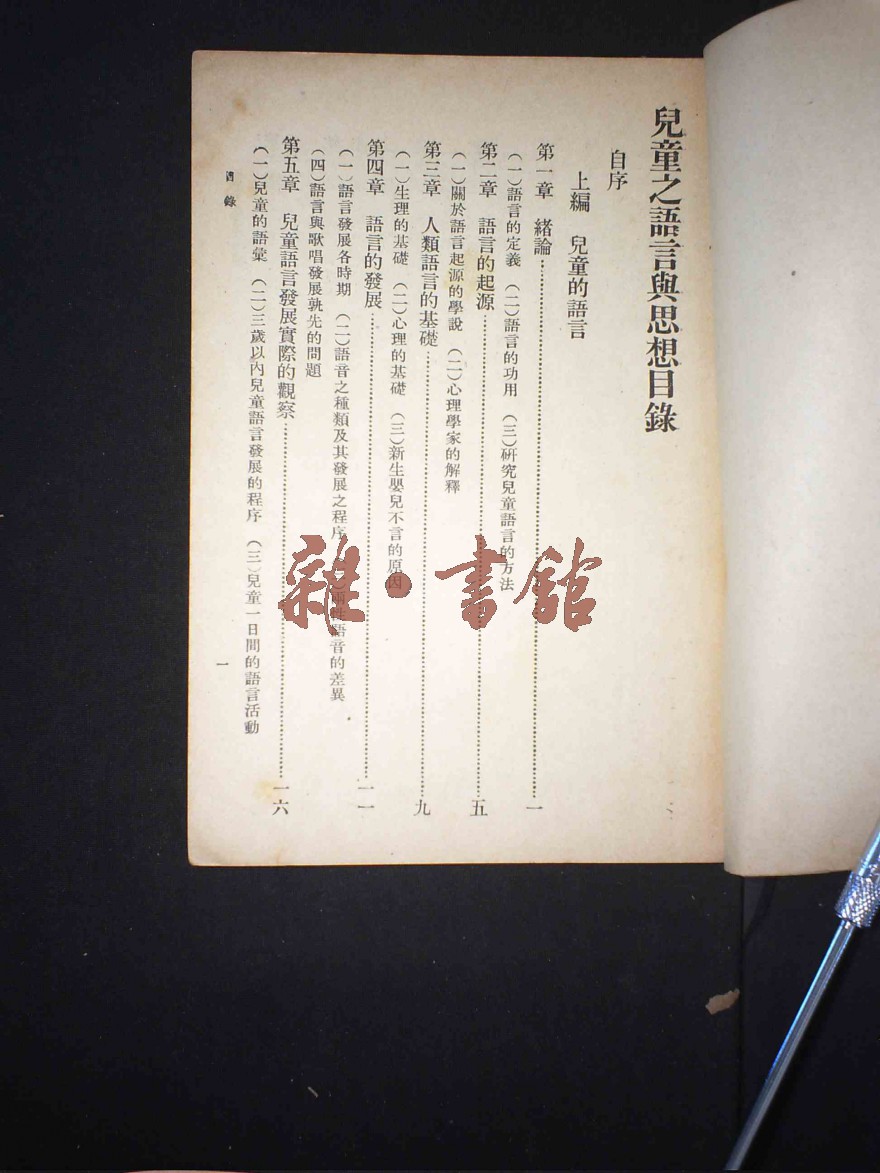 兒童之語言與思想目錄
自序
上編 兒童的語言
第一章 緒論⋯⋯⋯⋯⋯⋯一
(一)語言的定義 (二)語言的功用 (三)研究兒童語言的方法
第二章 語言的起源⋯⋯⋯⋯⋯⋯五
(一)關於語言起源的學說 (二)心理學家的解釋
第三章 人類語言的基礎⋯⋯⋯⋯⋯⋯九
(一)生理的基礎 (二)心理的基礎 (三)新生嬰兒不言的原因
第四章 語言的發展⋯⋯⋯⋯⋯⋯一一
(一)語言發展各時期 (二)語音之種類及其發展之程序 語音的差異
(四)語言與歌唱發展孰先的問題
第五章 兒童語言發展實際的觀察⋯⋯⋯⋯⋯⋯一六
(一)兒童的語彙 (二)三歲以內兒童語言發展的程序 (三)兒童一日間的語言活動
目錄
一
雜·書館